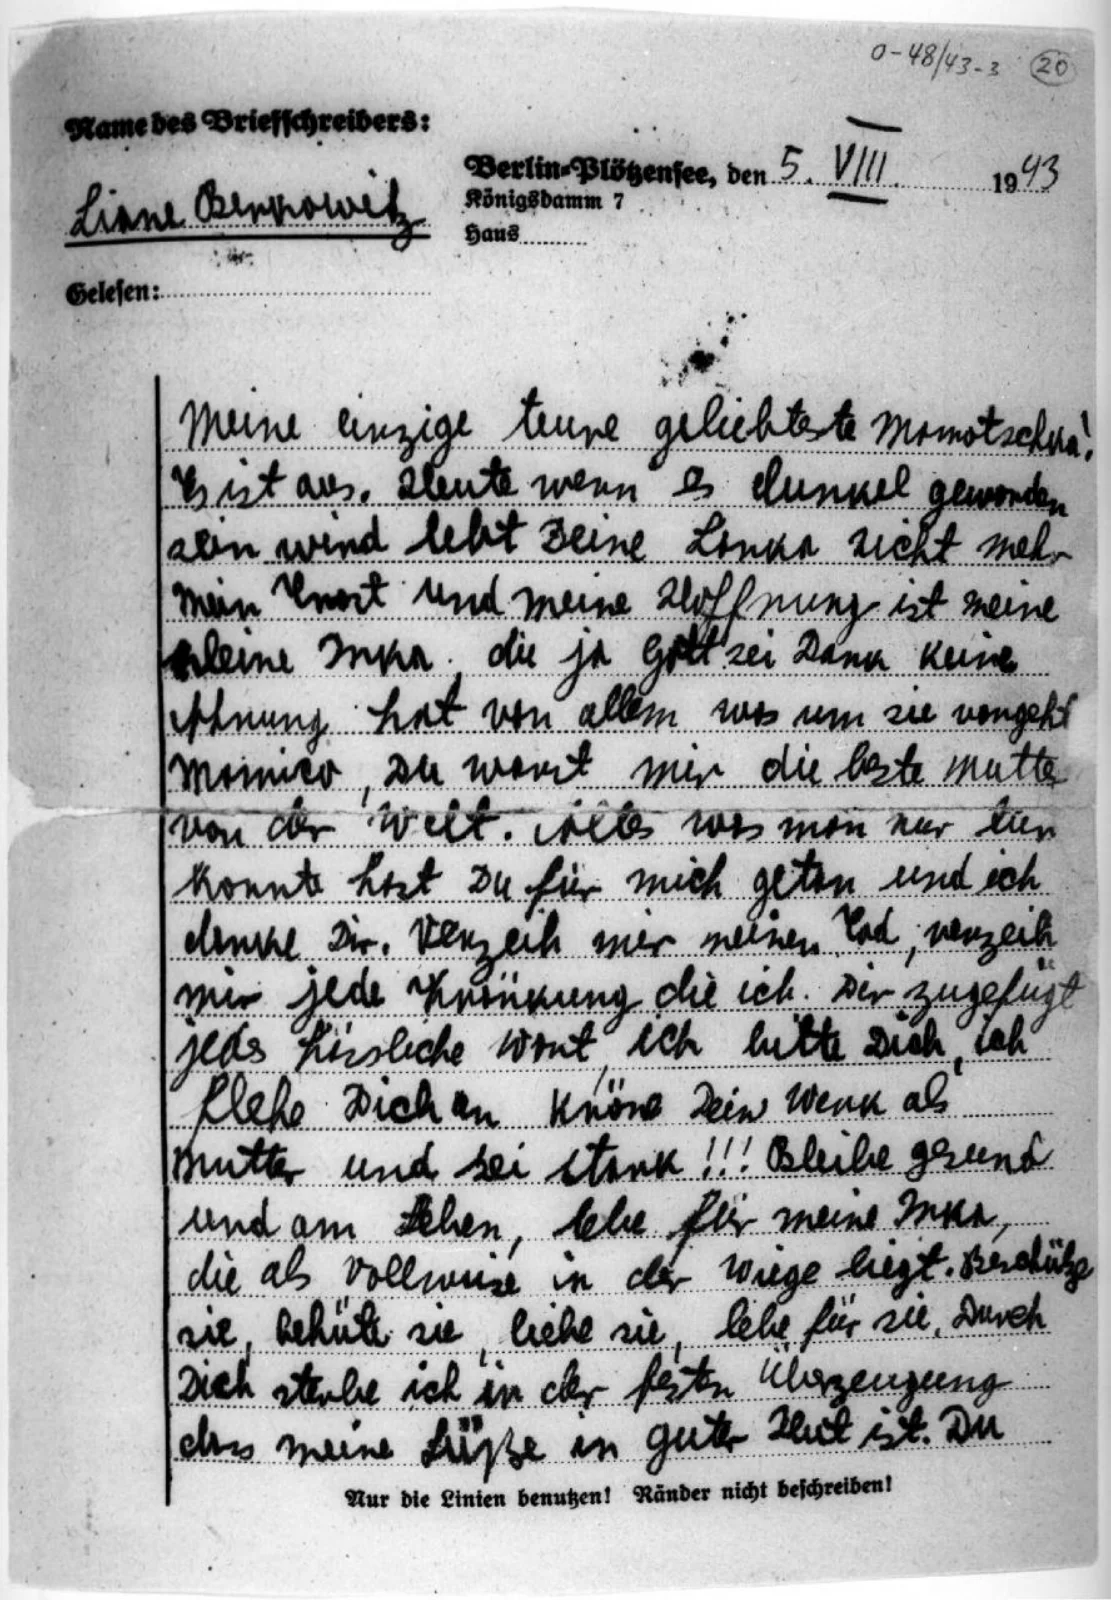 0-48/43-3 20
Name des Briefschreibers:
Berlin-Plötzensee, den 5. VIII. 1943
Liane Berkowitz
Königsdamm 7
Haus
Gelesen:
Meine einzige teure geliebteste Mamotschka!
Es ist aus. Heute wenn es dunkel geworden
sein wird lebt Deine Lanka nicht mehr
Mein Trost und meine Hoffnung ist meine
kleine Inka, die ja Gott sei Dank keine
Ahnung hat von allem was um sie vorgeht
Du warst mir die beste Mutter
von der Welt. Alles was man nur tun
konnte hast Du für mich getan und ich
danke Dir. Verzeih mir meinen Tod, verzeih
mir jede Kränkung die ich Dir zugefügt
jedes hässliche Wort, ich bitte Dich, ich
flehe Dich an kröne Dein Werk als
Mutter und sei stark!!! Bleibe gesund
und am Leben, lebe für meine Inka,
die als Vollwaise in der Wiege liegt. Beschütze
sie, behüte sie, liebe sie, lebe für sie. Durch
Dich sterbe ich in der festen Überzeugung
dass meine Süße in guter Hut ist. Du
Nur die Linien benutzen! Ränder nicht beschreiben!